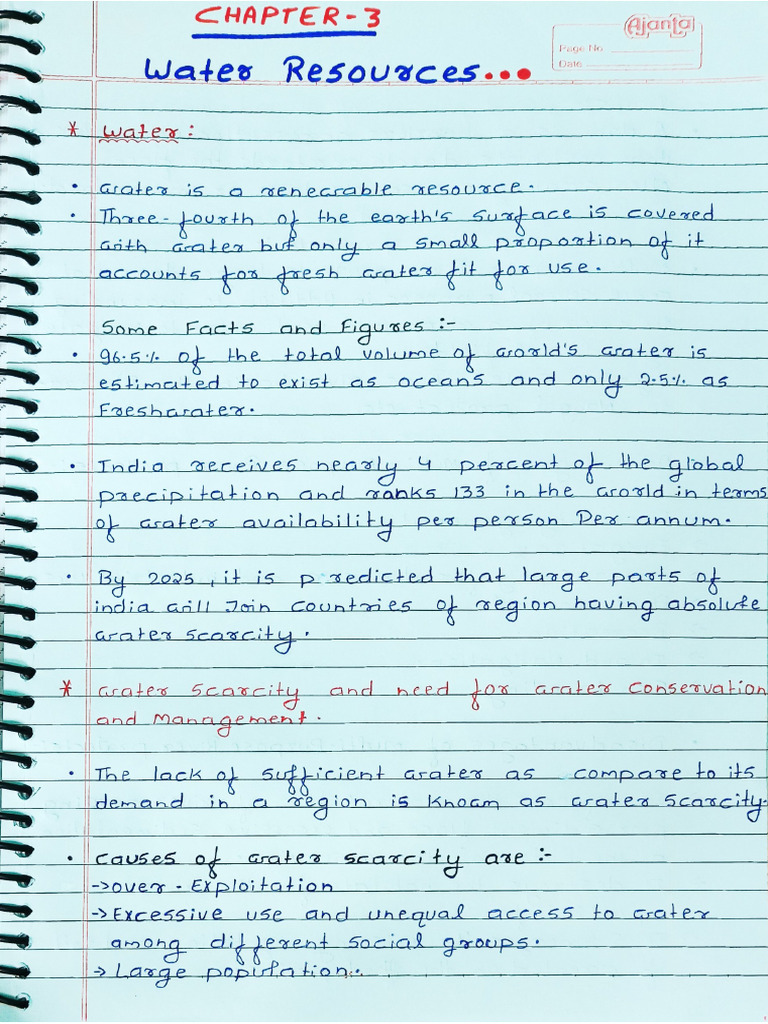 CHAPTER-3
Ajanta
Page No
Date
Water Resources...
* Water:
• Water is a renewable resource.
• Three-fourth of the earth's surface is covered
with water but only a small proportion of it
accounts for fresh water fit for use.
Some Facts and Figures :-
• 96.5% of the total volume of world's water is
estimated to exist as oceans and only 2.5% as
Freshwater.
• India receives nearly 4 percent of the global
precipitation and ranks 133 in the world in terms
of water availability per person Per annum.
• By 2025, it is predicted that large parts of
india will Join countries of region having absolute
water scarcity.
* Water Scarcity and need for water Conservation
and Management.
• The lack of sufficient water as compare to its
demand in a region is known as water scarcity.
• Causes of water scarcity are :-
→ over-Exploitation
→ Excessive use and unequal access to water
among different social groups.
→ Large population.